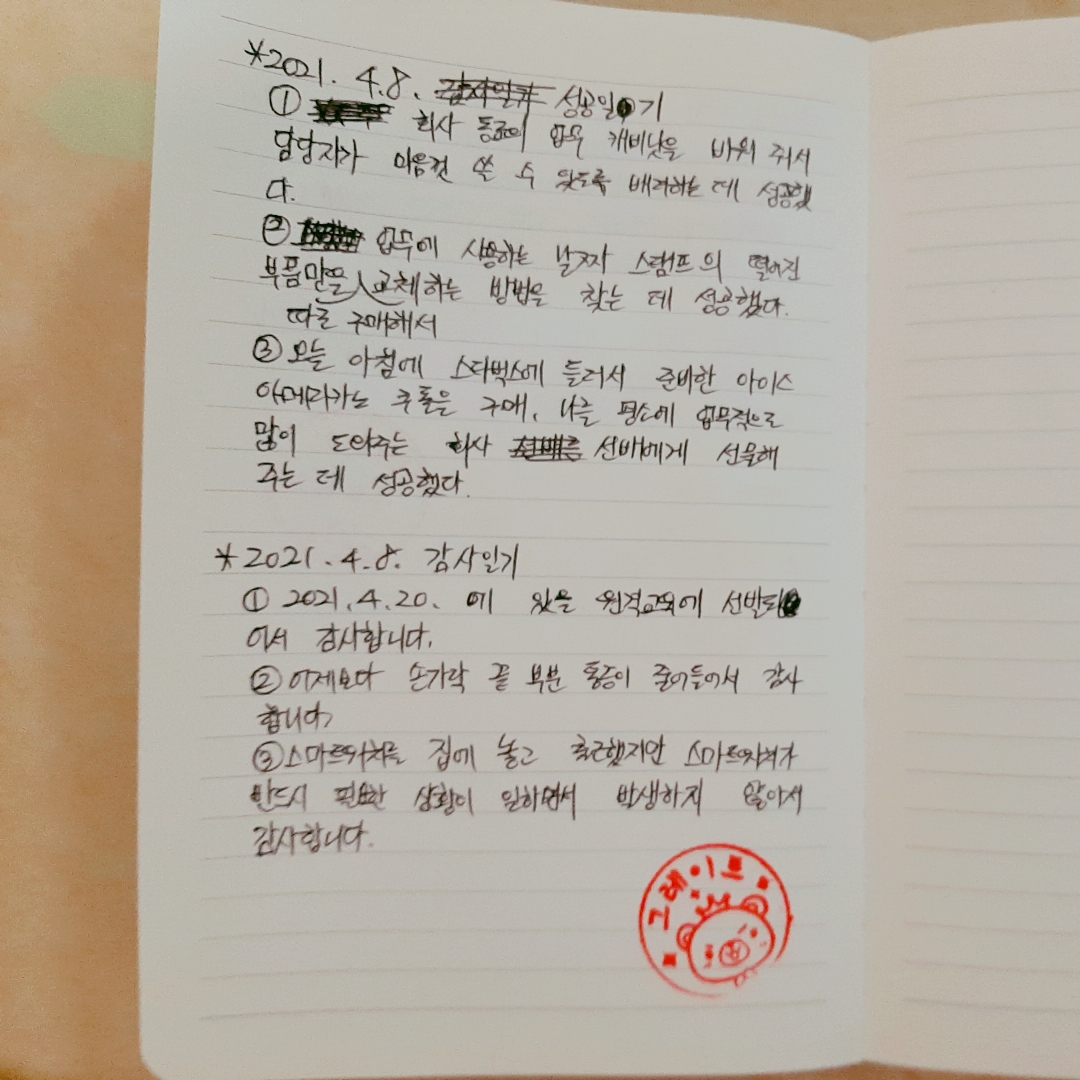 *2021. 4.8. 감사일기 성공일기
① 회사 동료의 업무 캐비닛을 바꿔 줘서
담당자가 마음껏 쓸 수 있도록 배려하는 데 성공했
다.
② 업무에 사용하는 날짜 스탬프의 떨어진
부품만을 교체하는 방법을 찾는 데 성공했다.
따로 구매해서
③ 오늘 아침에 스타벅스에 들러서 준비한 아이스
아메리카노 쿠폰을 구매, 나를 평소에 업무적으로
많이 도와주는 회사 선배에게 선물해
주는 데 성공했다.
*2021.4.8. 감사일기
① 2021.4.20. 에 있을 원격교육에 선발되
어서 감사합니다.
② 어제보다 손가락 끝 부분 통증이 줄어들어서 감사
합니다
③ 스마트워치를 집에 놓고 출근했지만 스마트워치가
반드시 필요한 상황이 일하면서 발생하지 않아서
감사합니다.
그레이트